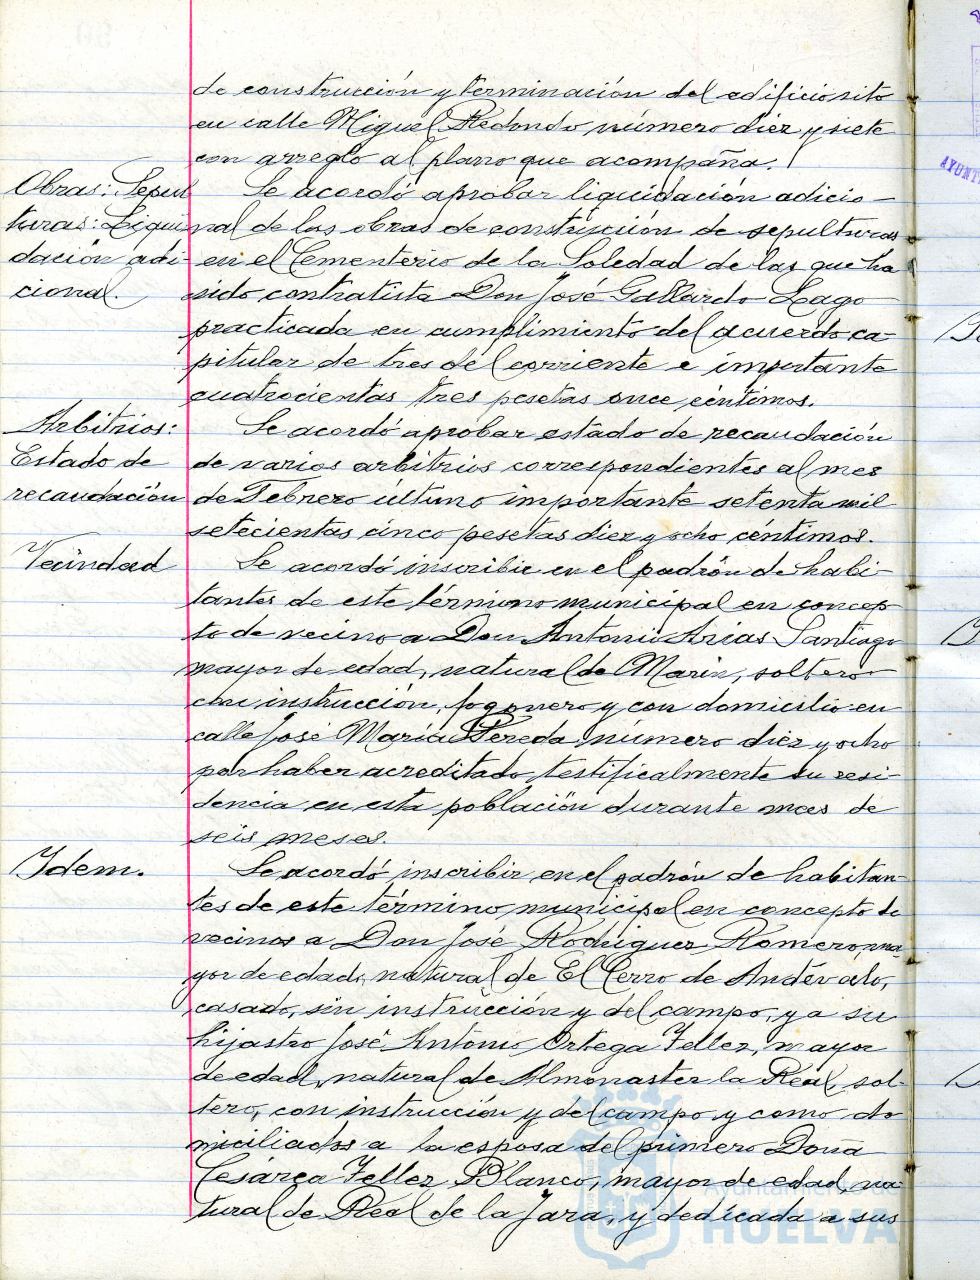 de construcción y terminación del edificio sito
en calle Miguel Redondo, número diez y siete
con arreglo al plano que acompaña.
Obras: Sepul
turas: Liqui
dación adi-
cional.
Se acordó aprobar liquidación adicio-
nal de las obras de construcción de sepulturas
en el Cementerio de la Soledad de las que ha
sido contratista Don José Gallardo Lago
practicada en cumplimiento del acuerdo ca-
pitular de tres del corriente e importante
cuatrocientas tres pesetas once céntimos.
Arbitrios:
Estado de
recaudación
Se acordó aprobar estado de recaudación
de varios arbitrios correspondientes al mes
de Febrero último importante setenta mil
setecientas cinco pesetas diez y ocho céntimos.
Vecindad
Se acordó inscribir en el padrón de habi-
tantes de este término municipal en concep-
to de vecino a Don Antonio Arias Santiago
mayor de edad, natural de Marin, soltero
con instrucción, fogonero y con domicilio en
calle José María Pereda, número diez y ocho
por haber acreditado testificalmente su resi-
dencia en esta población durante mas de
seis meses.
Idem.
Se acordó inscribir en el padrón de habitan-
tes de este término municipal en concepto de
vecinos a Don José Rodriguez Romero, ma-
yor de edad, natural de El Cerro de Andévalo,
casado, sin instrucción y del campo, y a su
hijastro José Antonio Ortega Tellez, mayor
de edad, natural de Almonaster la Real, sol-
tero, con instrucción y del campo y como do
miciliados a la esposa del primero Doña
Cesárea Tellez Blanco, mayor de edad, na-
tural de Real de la Jara, y dedicada a sus
Ayuntamiento de
HUELVA